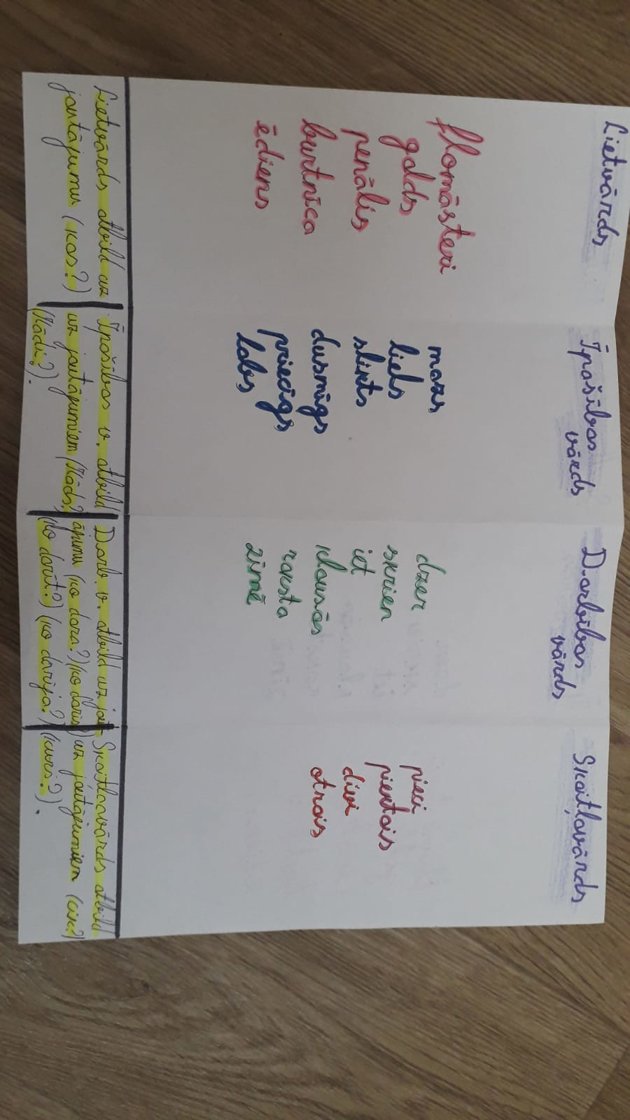 Lietvārds
flomāsteri
galds
penālis
burtnīca
ēdiens
Lietvārds atbild uz
jautājumu (kas?)
Īpašības
vārds
mazs
liels
slikts
dusmīgs
priecīgs
labs
Īpašības v. atbild
uz jautājumiem (Kāds?
(Kādi?).
Darbības
vārds
dzer
skrien
iet
klausās
raksta
zīmē
Darb. v. atbild uz jau-
ājumu (ko dara?) (ko darīs?
(ko darīt?) (ko darīja?)
Skaitļavārds
pieci
piektais
divi
otrais
Skaitļavārds atbild
uz jautājumiem (cik?)
(kurš?).